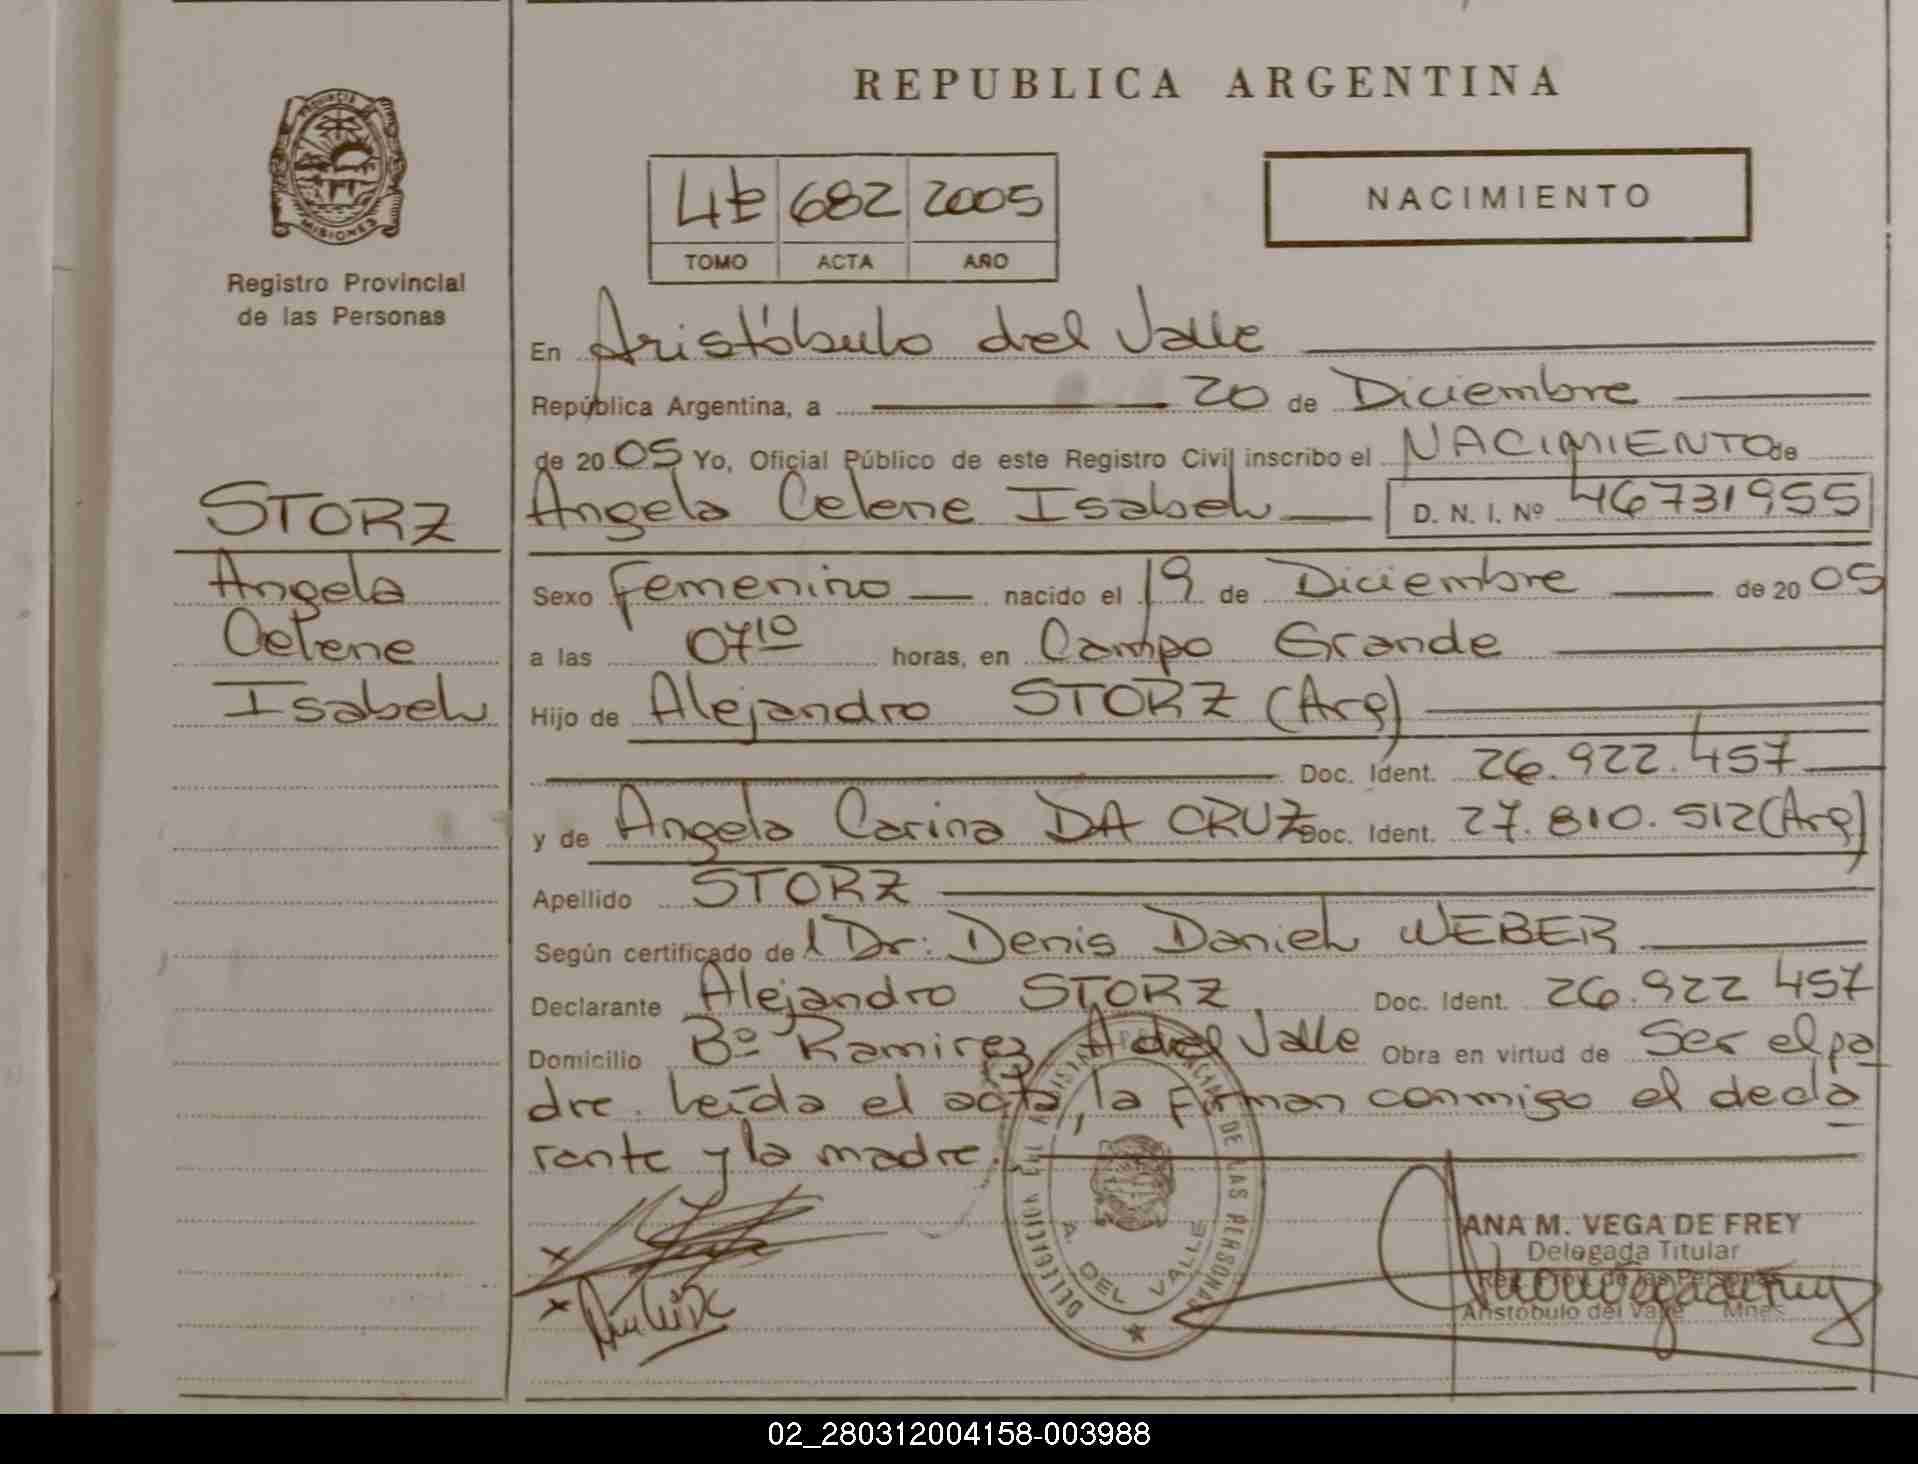 REPUBLICA ARGENTINA
PROVINCIA
MISIONES
Registro Provincial
de las Personas
4t 682 2005
TOMO ACTA AÑO
NACIMIENTO
En Aristóbulo del Valle
República Argentina, a 20 de Diciembre
de 20 05 Yo, Oficial Público de este Registro Civil inscribo el NACIMIENTO de
STORZ
Angela Celene Isabel D. N. I. Nº 46731955
Angela
Sexo Femenino nacido el 19 de Diciembre de 20 05
Celene
a las 07 10 horas, en Campo Grande
Isabel
Hijo de Alejandro STORZ (Arg)
Doc. Ident. 26.922.457
y de Angela Carina DA CRUZ Doc. Ident. 27.810.512 (Arg)
Apellido STORZ
Según certificado de l Dr: Denis Daniel WEBER
Declarante Alejandro STORZ Doc. Ident. 26.922 457
Domicilio Bº Ramirez A del Valle Obra en virtud de Ser el pa
dre. Leída el acta, la firman conmigo el decla
rante y la madre.
DELEGACION DE LAS PERSONAS
A. DEL VALLE
ANA M. VEGA DE FREY
Delegada Titular
Reg. Prov. de las Personas
Aristóbulo del Valle Mnes
02_280312004158-003988